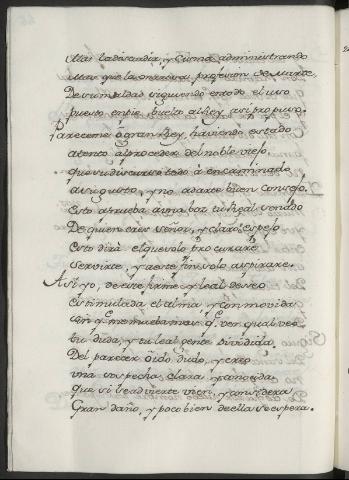 Mas la discordia, y Cisma administrando
Mas que la onrrosa profesion de Marte,
De su maldad siguiendo entodo el uso
puesto enpie, buelto al Rey asi propuso.
Pareceme ô gran Rey, haviendo estado
atento al proceder del noble viejo,
Que su discurso todo â encaminado
a su gusto, y no a darte buen consejo.
Esto aprueba â una boz tu Real senado
De quien eres señor, y claro espejo
Esto dirà el que solo procurare
servirte, y a este fin solo aspirare.
Asi yo, de este firme y leal deseo
Estimulada el alma y conmovida
sin q.e me mueba mas q.e ver qual veo
tu duda, y tu leal gente dividida,
Del parecer oido dudo, y creo
una sospecha clara y conocida
Que si se advierte vien, y considera
Gran daño, y poco bien de ella se espera.